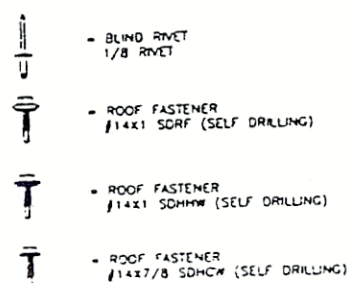 - BLIND RIVET
1/8 RIVET
- ROOF FASTENER
#14X1 SDRF (SELF DRILLING)
- ROOF FASTENER
#14X1 SDHHW (SELF DRILLING)
- ROOF FASTENER
#14X7/8 SDHCW (SELF DRILLING)